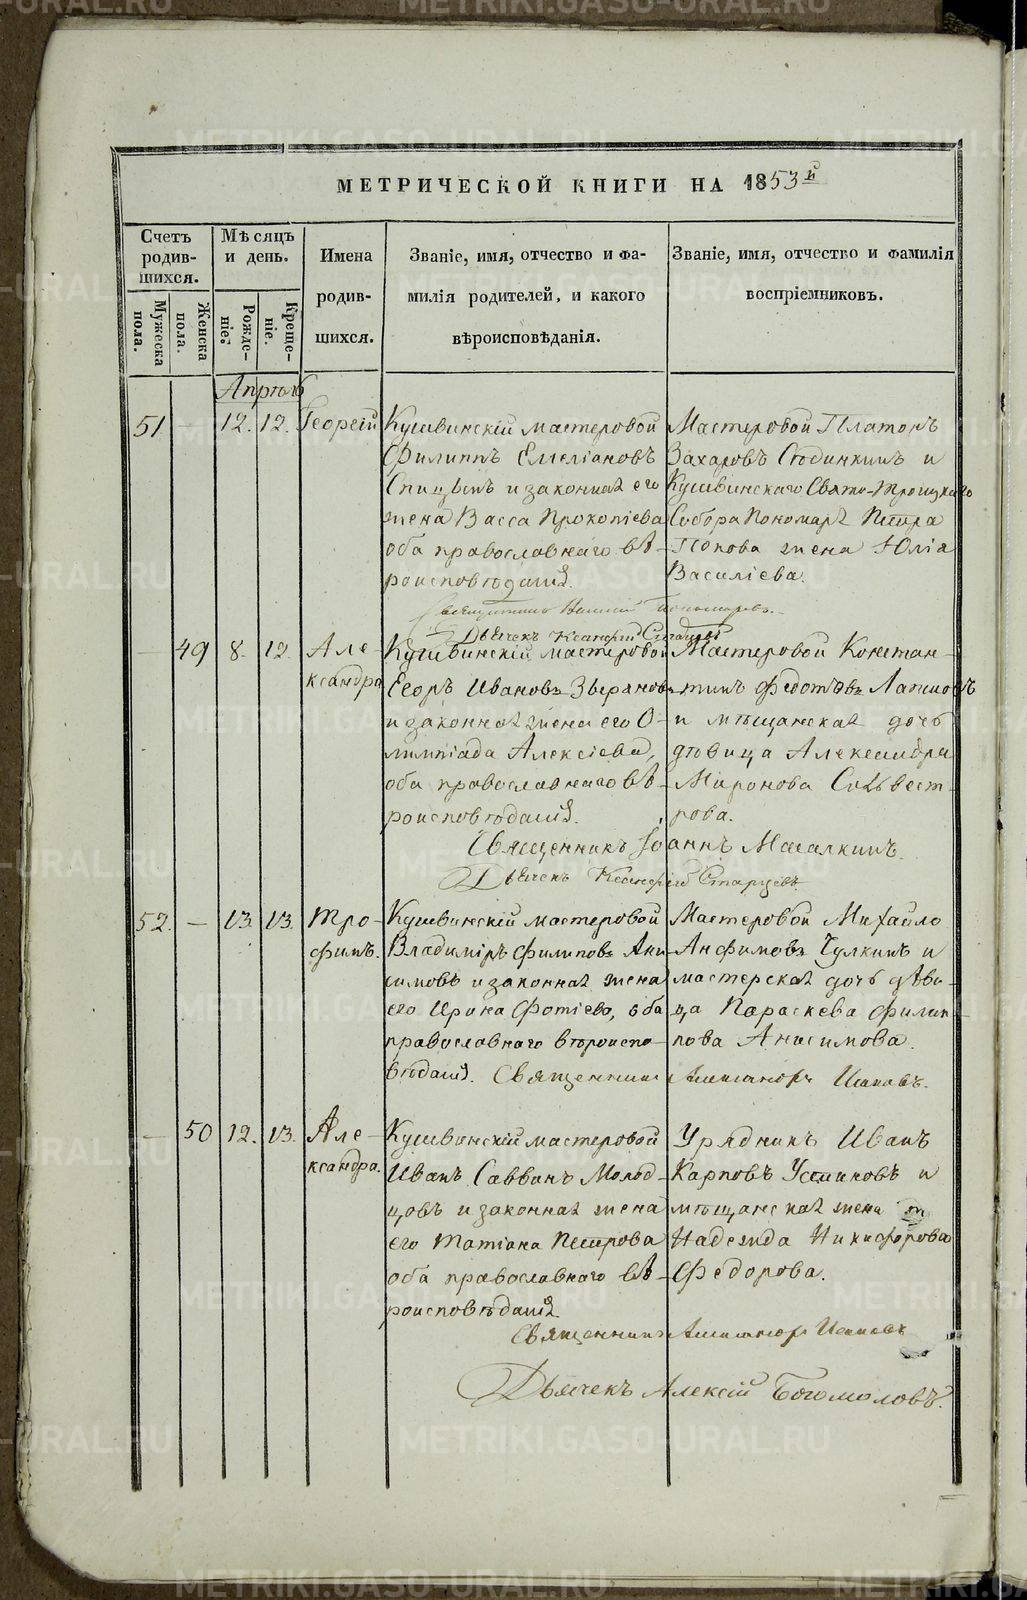 МЕТРИЧЕСКОЙ КНИГИ НА 1853й
Счетъ родив-шихся.
Мужеска пола.
Женска пола.
Мѣсяцъ и день.
Рожденіе.
Крещеніе.
Имена родив-шихся.
Званіе, имя, отчество и фа-
милія родителей, и какого
вѣроисповѣданія.
Званіе, имя, отчество и фамилія
воспріемниковъ.
Апрѣль
51 — 12. 12. Георгій
Кушвинскій мастеровой
Филиппъ Емеліановъ
Спицынъ и законная его
жена Васса Прокопіева
оба православнаго вѣ-
роисповѣданія.
Мастеровой Платонъ
Захаровъ Студинкинъ и
Кушвинскаго Свято-Троицкаго
Собора Пономаря Петра
Попова жена Юлія
Василіева.
Священникъ
Дьячекъ Ксенофій Старцевъ
— 49 8. 12. Але-
ксандра
Кушвинскій мастеровой
Егоръ Ивановъ Зверяновъ
и законная жена его О-
лимпіада Алексіева,
оба православнаго вѣ-
роисповѣданія.
Мастеровой Констан-
тинъ Федотовъ Лапшовъ
и мѣщанская дочь
дѣвица Александра
Миронова Сильвест-
рова.
Священникъ Іоаннъ Масалкинъ.
Дьячекъ Ксенофій Старцевъ.
52. — 13. 13. Тро-
фимъ.
Кушвинскій мастеровой
Владиміръ Филиповъ Ани-
симовъ и законная жена
его Ирина Фотіева, оба
православнаго вѣроиспо-
вѣданія.
Мастеровой Михайло
Анфимовъ Чулкинъ и
мастерская дочь дѣви-
ца Параскева Филип-
пова Анисимова.
Священникъ Александръ
— 50 12. 13. Але-
ксандра.
Кушвинскій мастеровой
Иванъ Саввинъ Молод-
цовъ и законная жена
его Татіана Петрова
оба православнаго вѣ-
роисповѣданія
Урядникъ Иванъ
Карповъ Устиновъ и
мѣщанская жена
Надежда Никифорова
Федорова.
Священникъ Александръ
Дьячекъ Алексій Богомоловъ.
METRIKI.GASO-URAL.RU